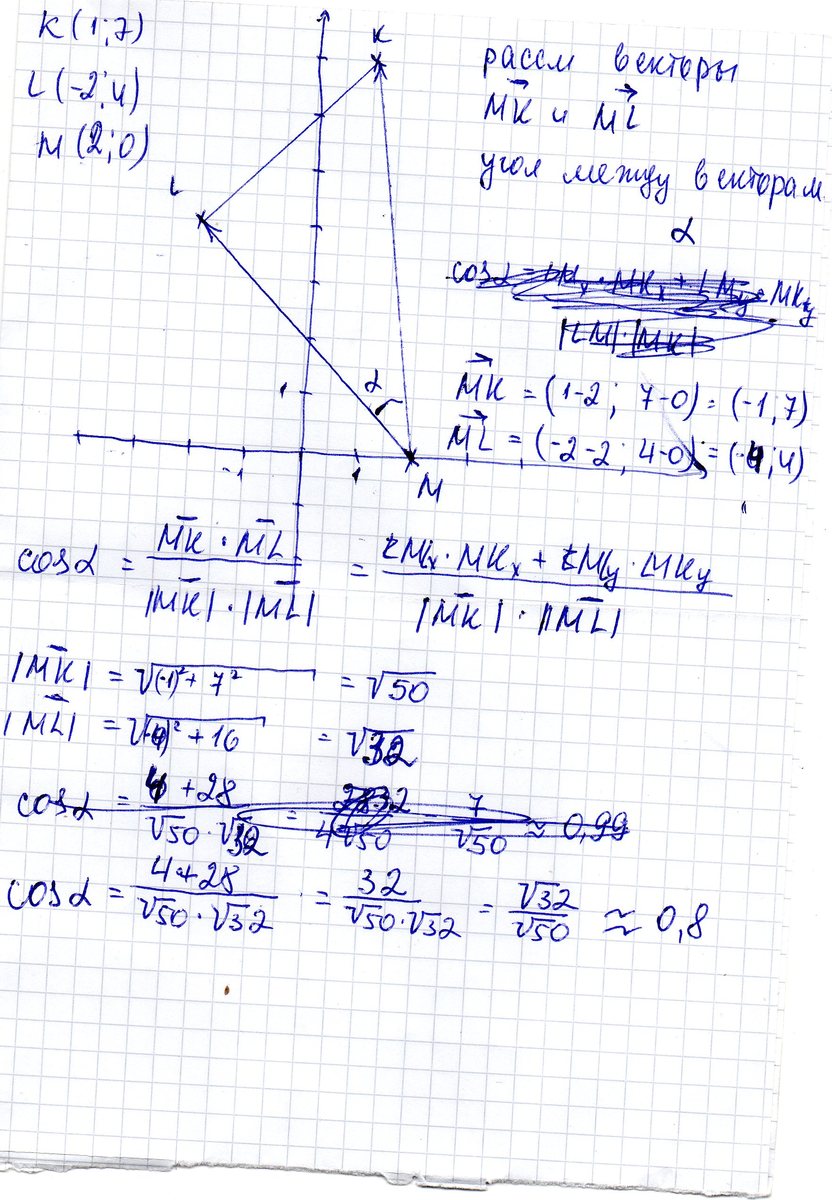 K (1; 7)
L (-2; 4)
M (2; 0)
K
L
α
1
-1
1
M
рассм векторы
MK и ML
угол между векторам
α
cosα =
MK = (1-2; 7-0) = (-1; 7)
ML = (-2-2; 4-0) = (-4; 4)
cosα = MK · ML / |MK| · |ML| = MLx · MKx + MLy · MKy / |MK| · |ML|
|MK| = √(-1)² + 7² = √50
|ML| = √(-4)² + 16 = √32
cosα = 4 + 28 / √50 · √32 = 4√50 7 / √50 ≈ 0,99
cosα = 4 + 28 / √50 · √32 = 32 / √50 · √32 = √32 / √50 ≈ 0,8